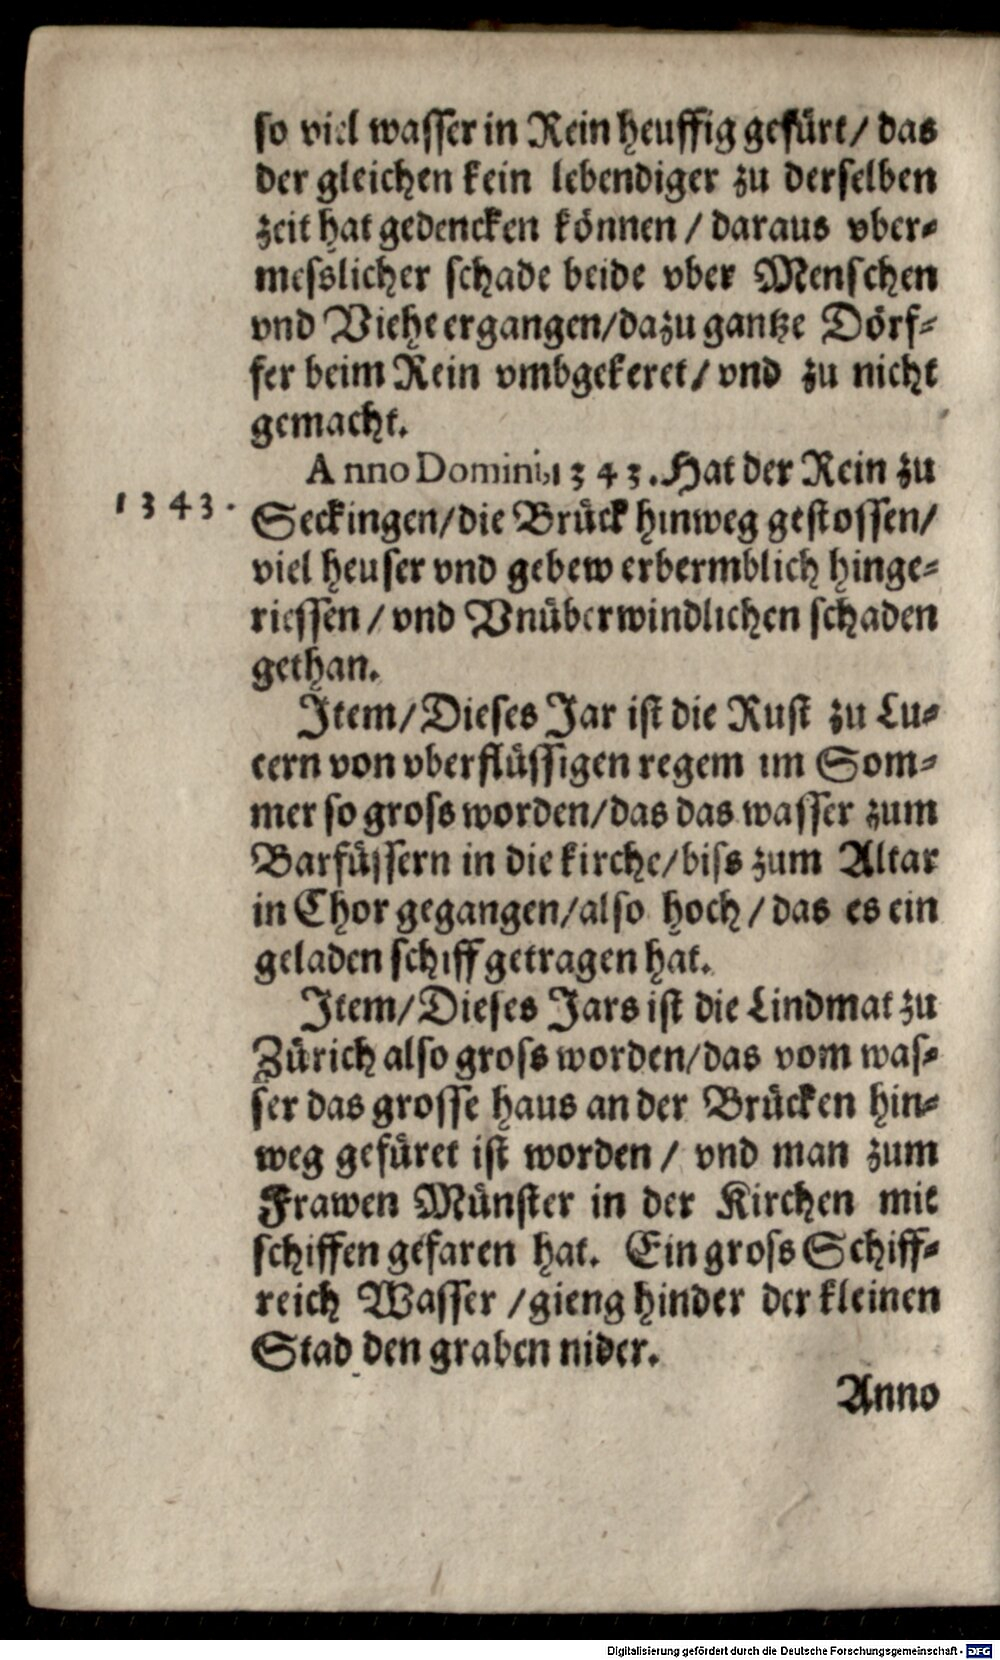 so viel wasser in Rein heuffig gefürt/ das
der gleichen kein lebendiger zu derselben
zeit hat gedencken können / daraus vber-
messlicher schade beide vber Menschen
vnd Viehe ergangen/dazu gantze Dörf-
fer beim Rein vmbgekeret/ vnd zu nicht
gemacht.
Anno Domini, 1343. Hat der Rein zu
1343.
Seckingen/die Brück hinweg gestossen/
viel heuser vnd gebew erbermblich hinge-
riessen / vnd Vnüberwindlichen schaden
gethan.
Item/Dieses Jar ist die Rust zu Lu-
cern von vberflüssigen regem im Som-
mer so gross worden/das das wasser zum
Barfüssern in die kirche/biss zum Altar
in Chor gegangen/also hoch / das es ein
geladen schiff getragen hat.
Item/Dieses Jars ist die Lindmat zu
Zürich also gross worden/das vom was-
ser das grosse haus an der Brücken hin-
weg gefüret ist worden / vnd man zum
Frawen Münster in der Kirchen mit
schiffen gefaren hat. Ein gross Schiff-
reich Wasser /gieng hinder der kleinen
Stad den graben nider.
Anno
Digitalisierung gefördert durch die Deutsche Forschungsgemeinschaft - DFG